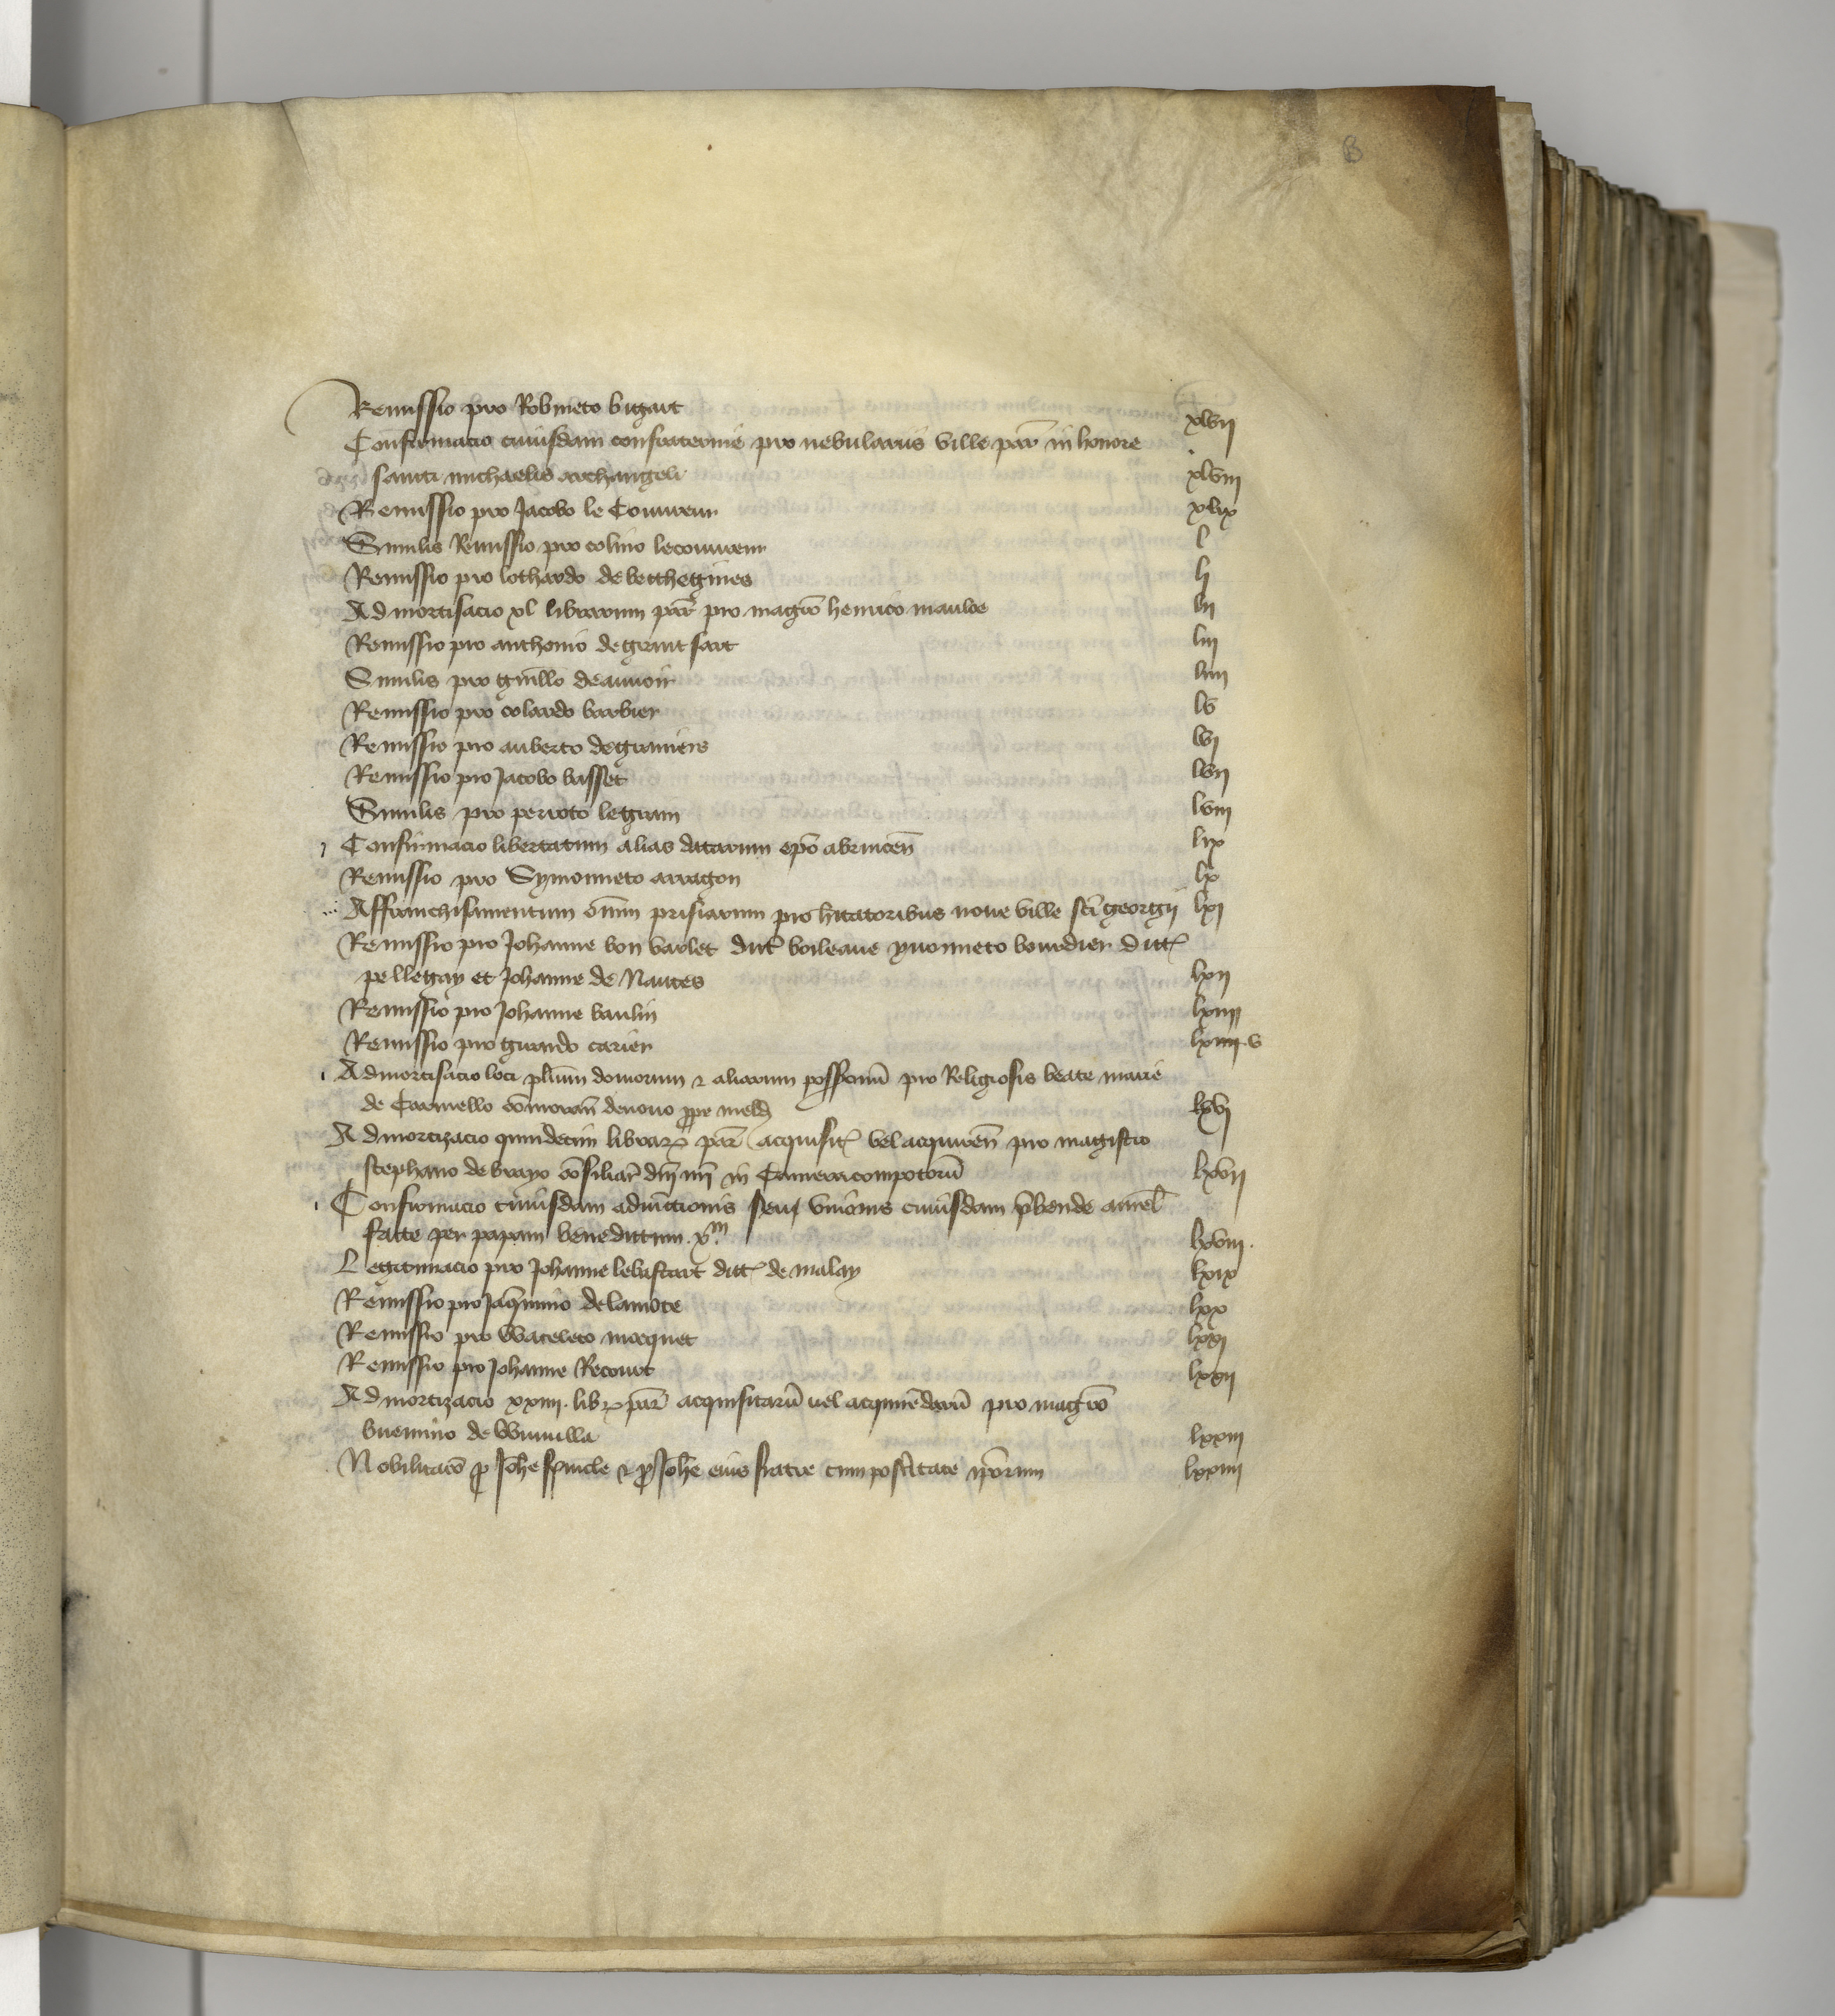 B
Remissio pro Robineto bigart xlvii
Confirmacio cuiusdam confraternie pro nebulariis ville par̄ in honore
sancti michaelis archangeli xlviii
Remissio pro Jacobo le Couvreur xlix
Similis Remissio pro colino lecouvreur l
Remissio pro lothardo de bethegnies li
Admortisacio xl librarum par̄ pro magrō henrico mauloe lii
Remissio pro anthonio de grant sart liii
Similis pro guillō deauvoir liiii
Remissio pro colardo barbier lv
Remissio pro auberto degraniers lvi
Remissio pro Jacobo basset lvii
Similis pro perroto legram lviii
Confirmacio libertatum alias datarum epō abrincen̄ lix
Remissio pro Symonneto arragon lx
Affranchisamentum om̄im prisiarum pro hītatoribus noue ville scī georgii lxi
Remissio pro Johanne bon varlet dict boileaue yuonneto bourdier dict
pellegay et Johanne de Nantes lxii
Remissio pro Johanne baulin lxiii
Remissio pro girardo carier lxiiii. v
Admortisacio loci pluriūm domorum & aliarum possessionū pro Religiosis beate marie
de Carmello cōmoran̄ denouo prope meld lxvi
Admortizacio quindecim librar par̄ acquisit vel acquiren̄ pro magistro
stephano de brayo cōsiliar̄ dn̄i nr̄i in Camera compotorū lxvii
Confirmacio cuiusdam adiunctionis seu unionis cuiusdam p̄bende aurel̄
facte per papam benedictum xm lxviii.
Legitimacio pro Johanne lebastart dict de malay lxix
Remissio pro Jaq̄mino delamote lxx
Remissio pro Wateleto morquet lxxi
Remissio pro Johanne Recouot lxxii
Admortizacio xxiiii. lib par̄ acquisitarū uel acquirēdarū pro magrō
de lxxiii
Nobilitacō p Joh̄e spinele & p Joh̄e eius fratre cum post̄itate ip̄orum lxxiiii